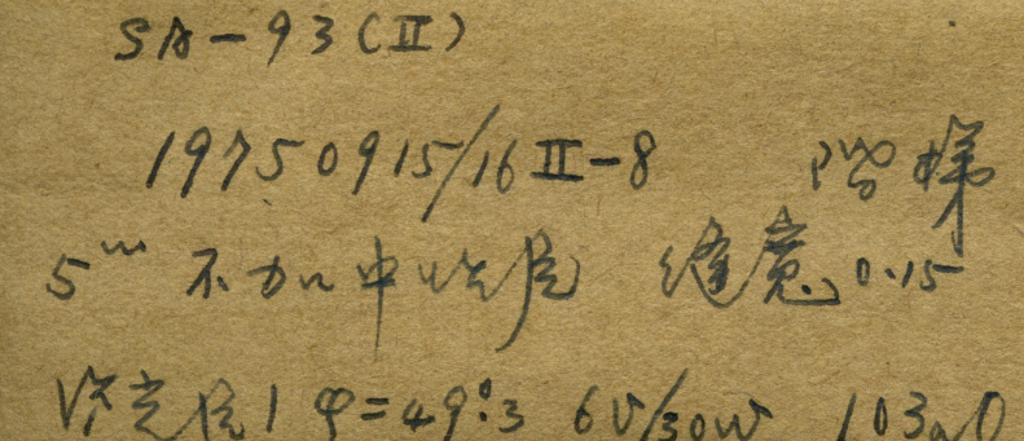 SA-93(II)
19750915/16 II-8 阶梯
5ᵐ 不加中性片 缝宽 0.15
φ=49°.3 6V/30W 103aO